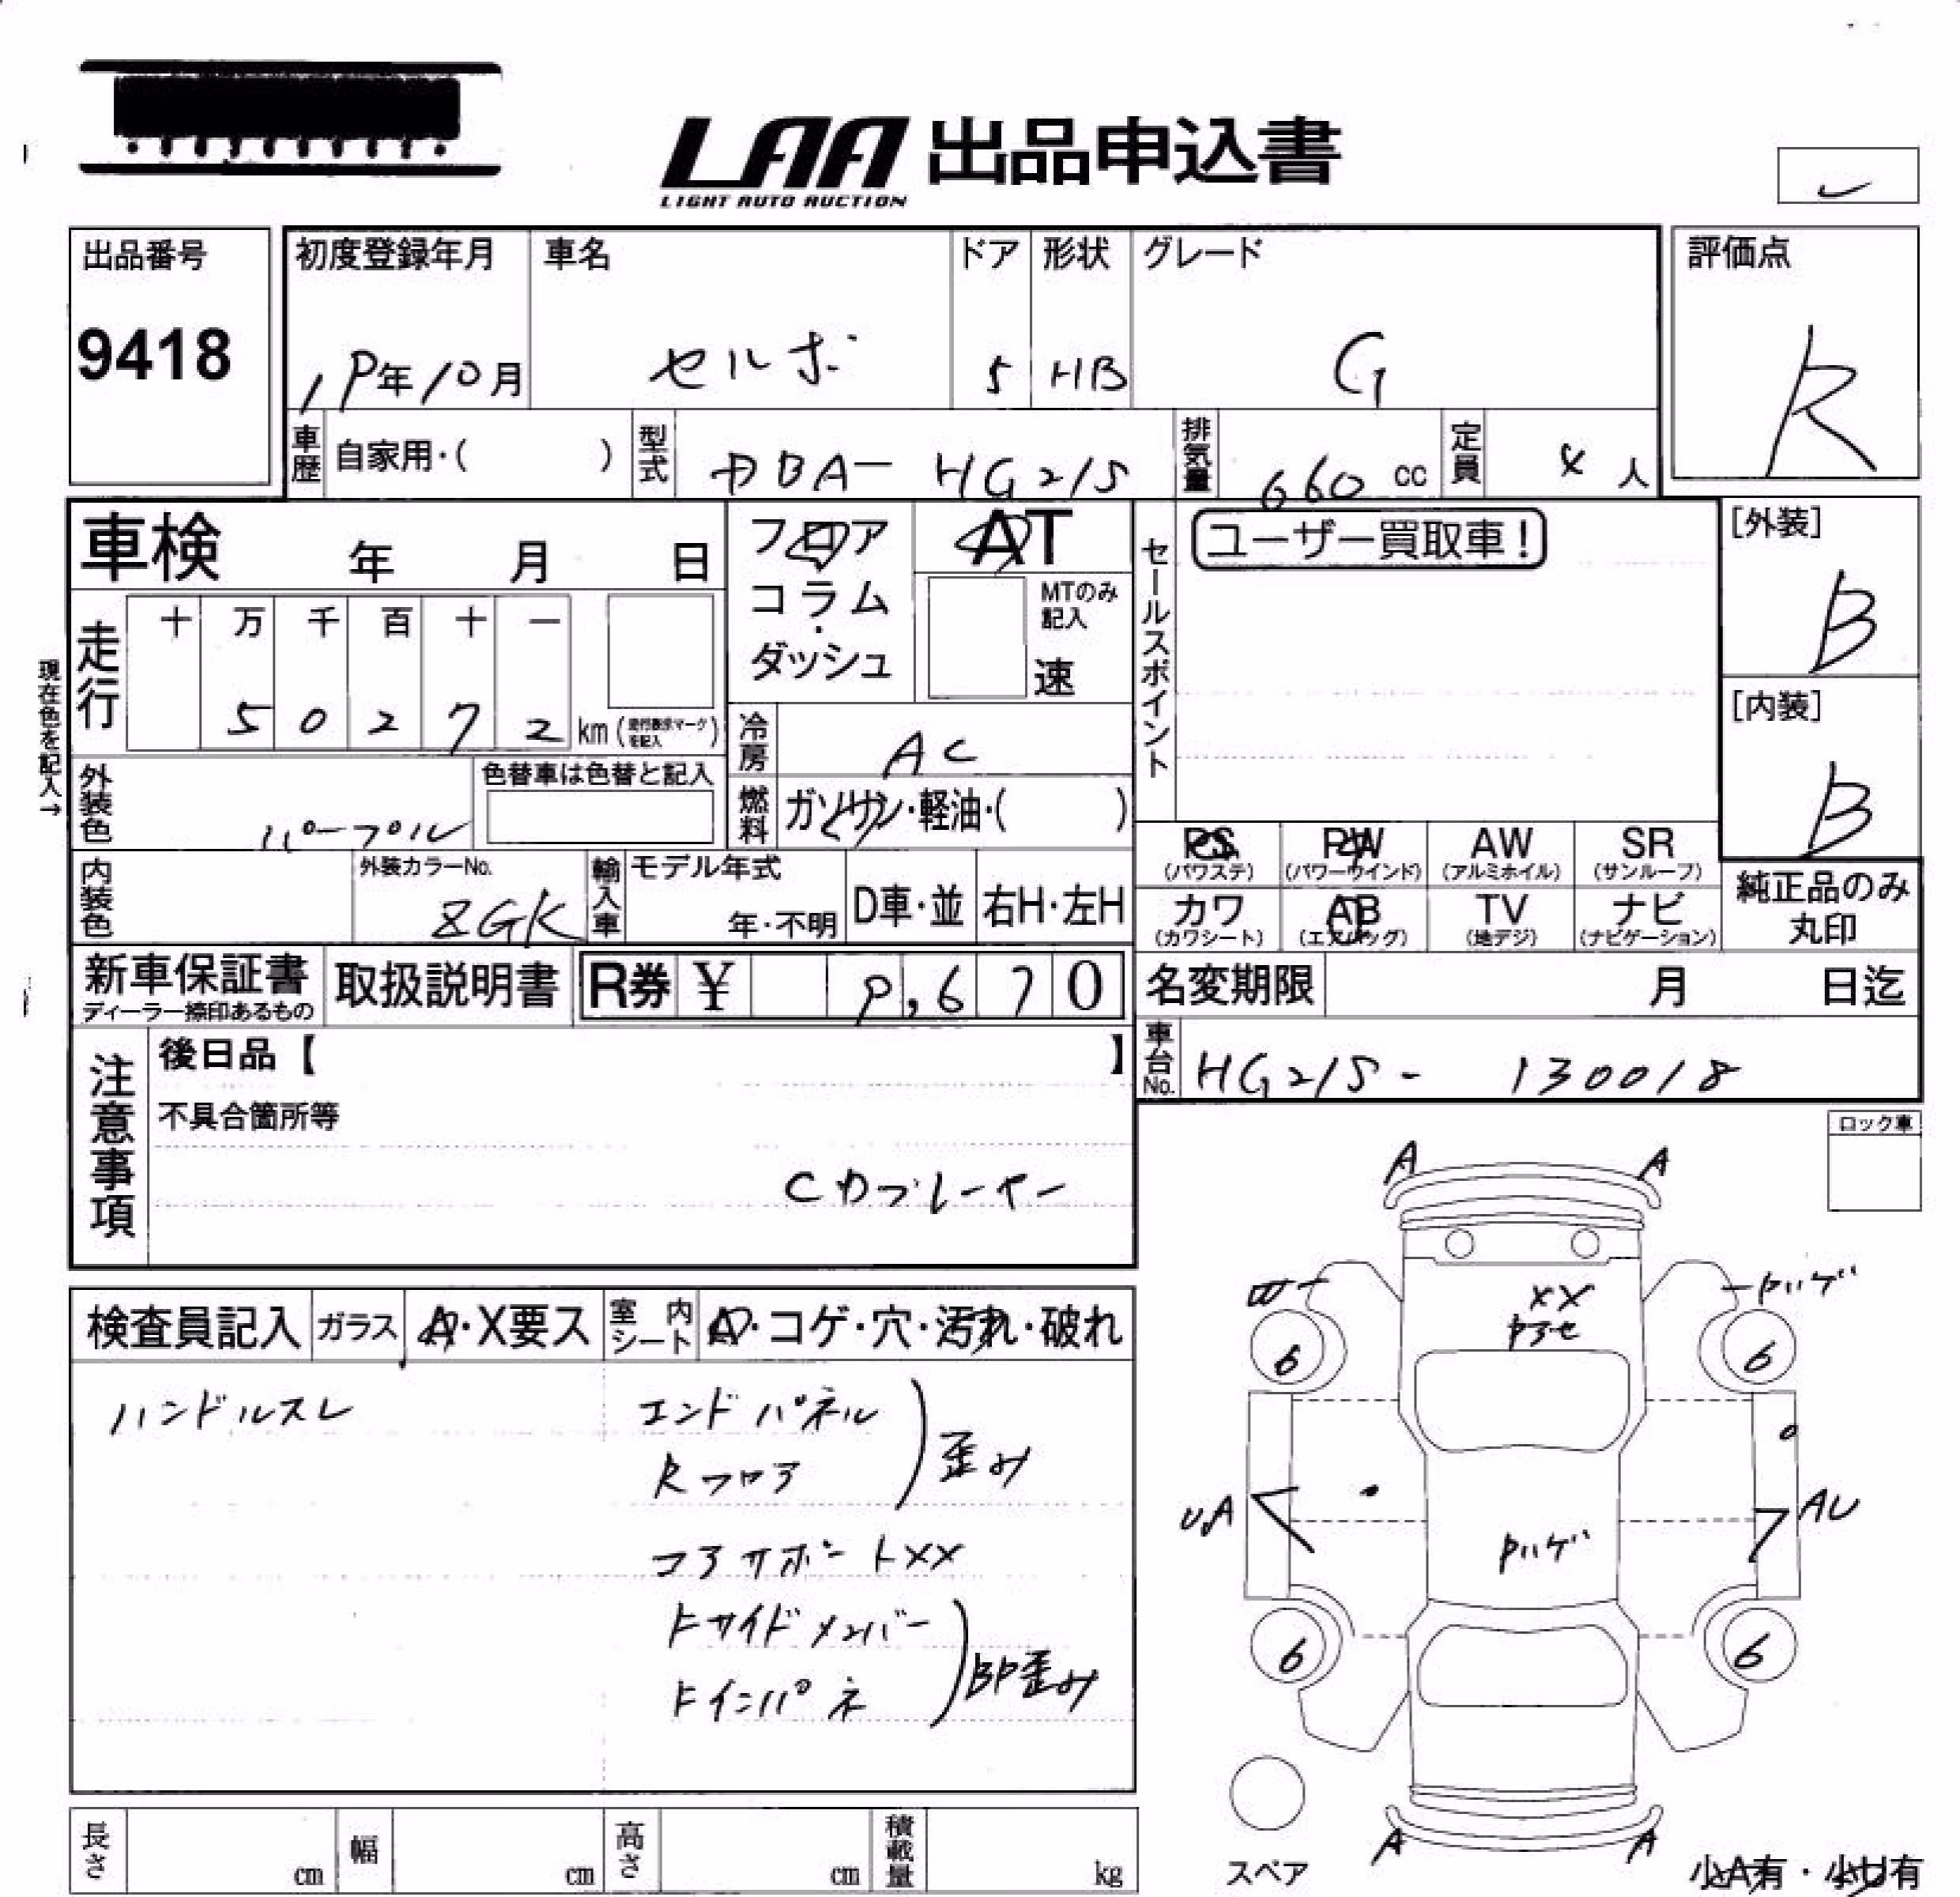 LAA 出品申込書
LIGHT AUTO AUCTION
出品番号
9418
初度登録年月
19年10月
車名
セルボ
ドア
5
形状
HB
グレード
G
評価点
R
車歴
自家用・( )
型式
DBA- HG21S
排気量
660 cc
定員
4 人
車検 年 月 日
フロア
コラム
・
ダッシュ
AT
MTのみ
記入
速
セールスポイント
ユーザー買取車!
[外装]
B
[内装]
B
現在色を記入→
走行
十 万 千 百 十 一
5 0 2 7 2 km (走行表示マークを記入)
冷房
AC
燃料
ガソリン・軽油・( )
外装色
パープル
色替車は色替と記入
内装色
外装カラーNo.
ZGK
輸入車
モデル年式
年・不明
D車・並
右H・左H
PS
(パワステ)
PW
(パワーウインド)
AW
(アルミホイル)
SR
(サンルーフ)
カワ
(カワシート)
AB
(エアバッグ)
TV
(地デジ)
ナビ
(ナビゲーション)
純正品のみ
丸印
新車保証書
ディーラー捺印あるもの
取扱説明書
R券 ¥ 9,670
名変期限 月 日迄
車台No.
HG21S- 130018
注意事項
後日品【 】
不具合箇所等
CDプレーヤー
ロック車
検査員記入
ガラス
A・X要ス
室内シート
A・コゲ・穴・汚れ・破れ
ハンドルスレ
エンドパネル
Rフロア
歪み
コアサポートXX
Fサイドメンバー
Fインパネ
BP歪み
A A
XX
Pアセ
Pハゲ
6 6
U.A
AU
Pハゲ
6 6
A A
スペア
小A有・小U有
長さ cm
幅 cm
高さ cm
積載量 kg